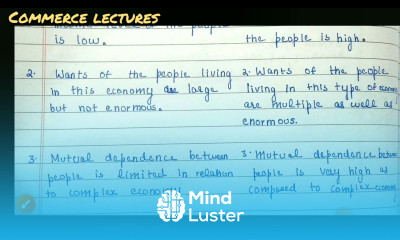 COMMERCE LECTURES
is low.
the people is high.
2. Wants of the people living
in this economy are large
but not enormous.
2. Wants of the people
living in this type of economy
are multiple as well as
enormous.
3. Mutual dependence between
people is limited in relation
to complex economy
3. Mutual dependence between
people is very high as
composed to complex economy
Mind
Luster